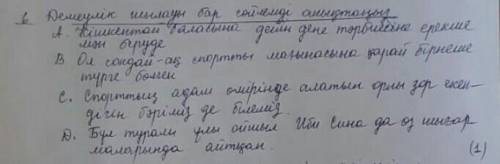 6. Демеулік шылауы бар сөйлемді анықтаңыз
A. Кішкентай баласына дейін дене тәрбиесіне ерекше
мән беруде
B. Ол сондай-ақ спортты мағынасына қарай бірнеше
түрге бөлген
C. Спорттың адам өмірінде алатын орны зор екен-
дігін бәріміз де білеміз.
D. Бұл туралы ұлы ойшыл Ибн Сина да өз шығар
маларында айтқан.
(1)